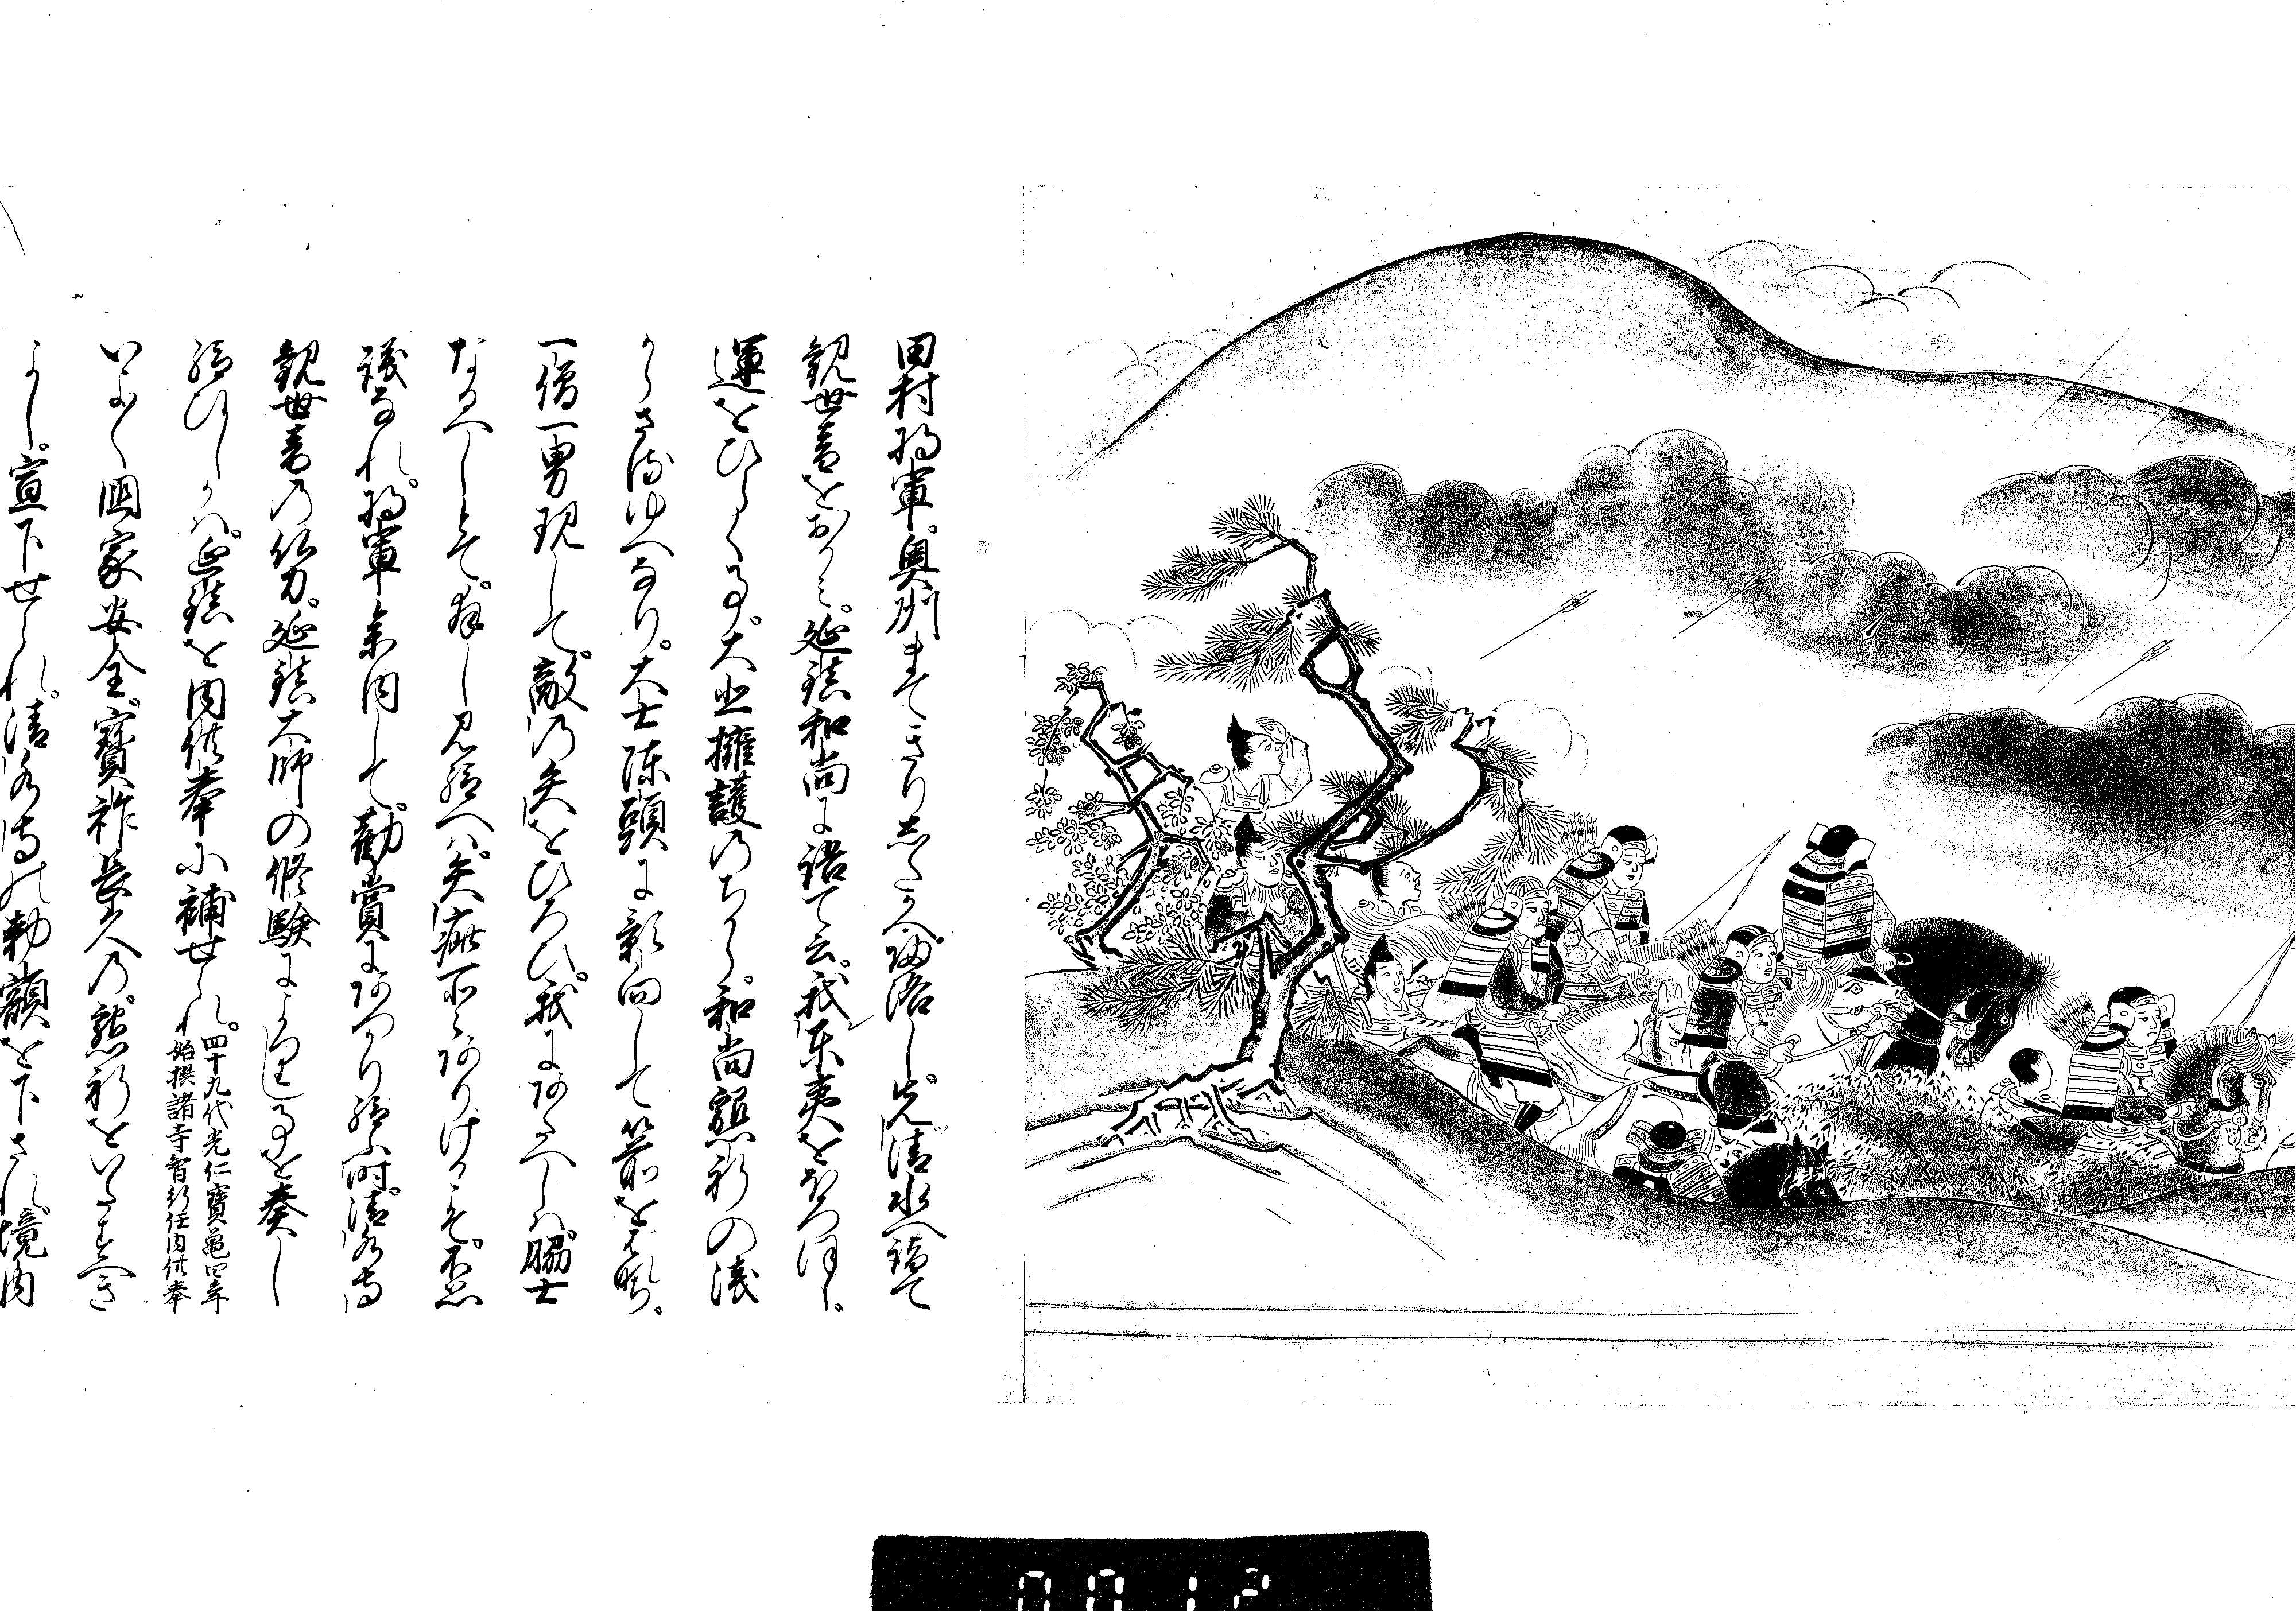 田村将軍。奥州まてきりしたかへ帰洛し。先清水へ詣て
観世音をおかミ。延鎮和尚に語て云。我東夷をほろほし。
運をひらく事。大悲擁護のちから。和尚懇祈の後
からさるゆへなり。大士陣頭に影向して箭をは
一僧一男現して。敵の矢をひろひ。我にあたへしハ。脇士
なるへしとて。拝し見給へハ。矢疵所々ありけるそ。不思
議なれ。将軍参内して。勧賞にあつかり給ふ時。清水寺
観世音の仏力。延鎮大師の修験による事を奏し
給ひしかハ。延鎮を内供奉に補せられ。
四十九代光仁寶亀四年
始撰諸寺智行任内供奉
いよ〱国家安全。寶祚長久の懇祈をいたすへき
よし。宣下せられ。清水寺の勅額を下され。境内
0012